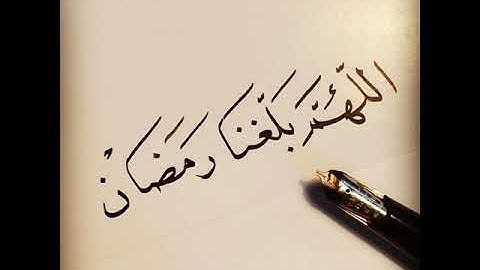 اللّهُمَّ بَلِّغْنَا رَمَضَانْ